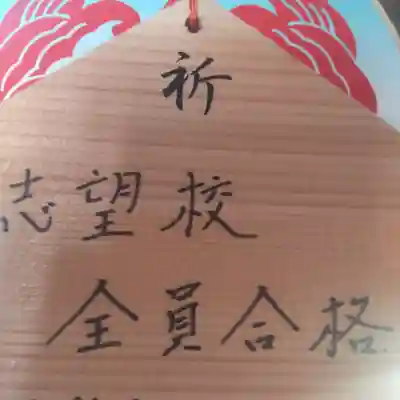 祈
志望校
全員合格